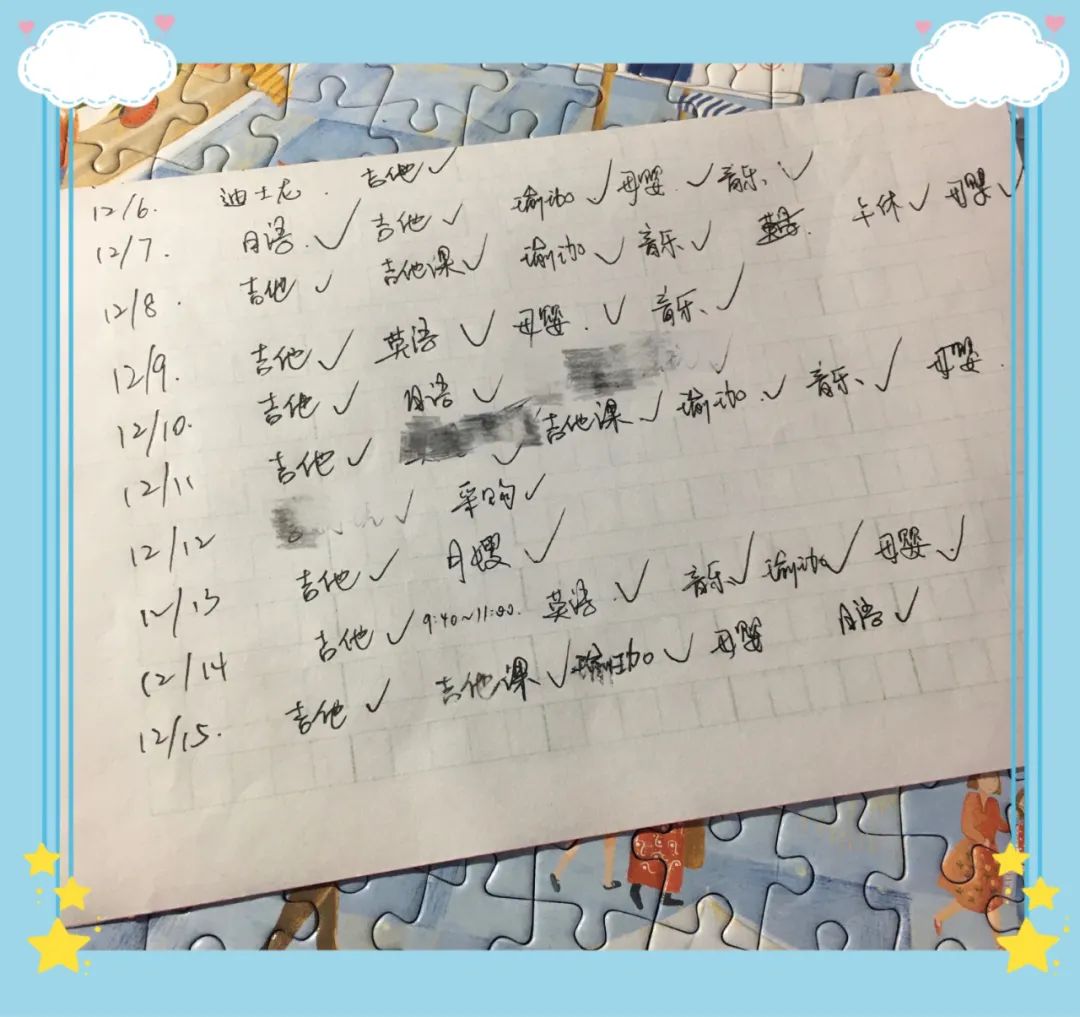 12/6. 迪士尼. 吉他✓
12/7. 日语.✓ 吉他✓ 瑜伽✓ 母婴.✓ 音乐、✓
12/8. 吉他✓ 吉他课✓ 瑜伽✓ 音乐✓ 英语. 午休✓ 母婴✓
12/9. 吉他✓ 英语✓ 母婴.✓ 音乐、✓
12/10. 吉他✓ 日语✓ ✓
12/11 吉他✓ ✓ 吉他课✓ 瑜伽.✓ 音乐、✓ 母婴.
12/12 ✓ 采购✓
12/13 吉他✓ 月嫂✓
12/14 吉他✓ 9:40~11:00. 英语.✓ 音乐✓ 瑜伽✓ 母婴✓
12/15. 吉他✓ 吉他课✓ 瑜伽✓ 母婴 日语✓